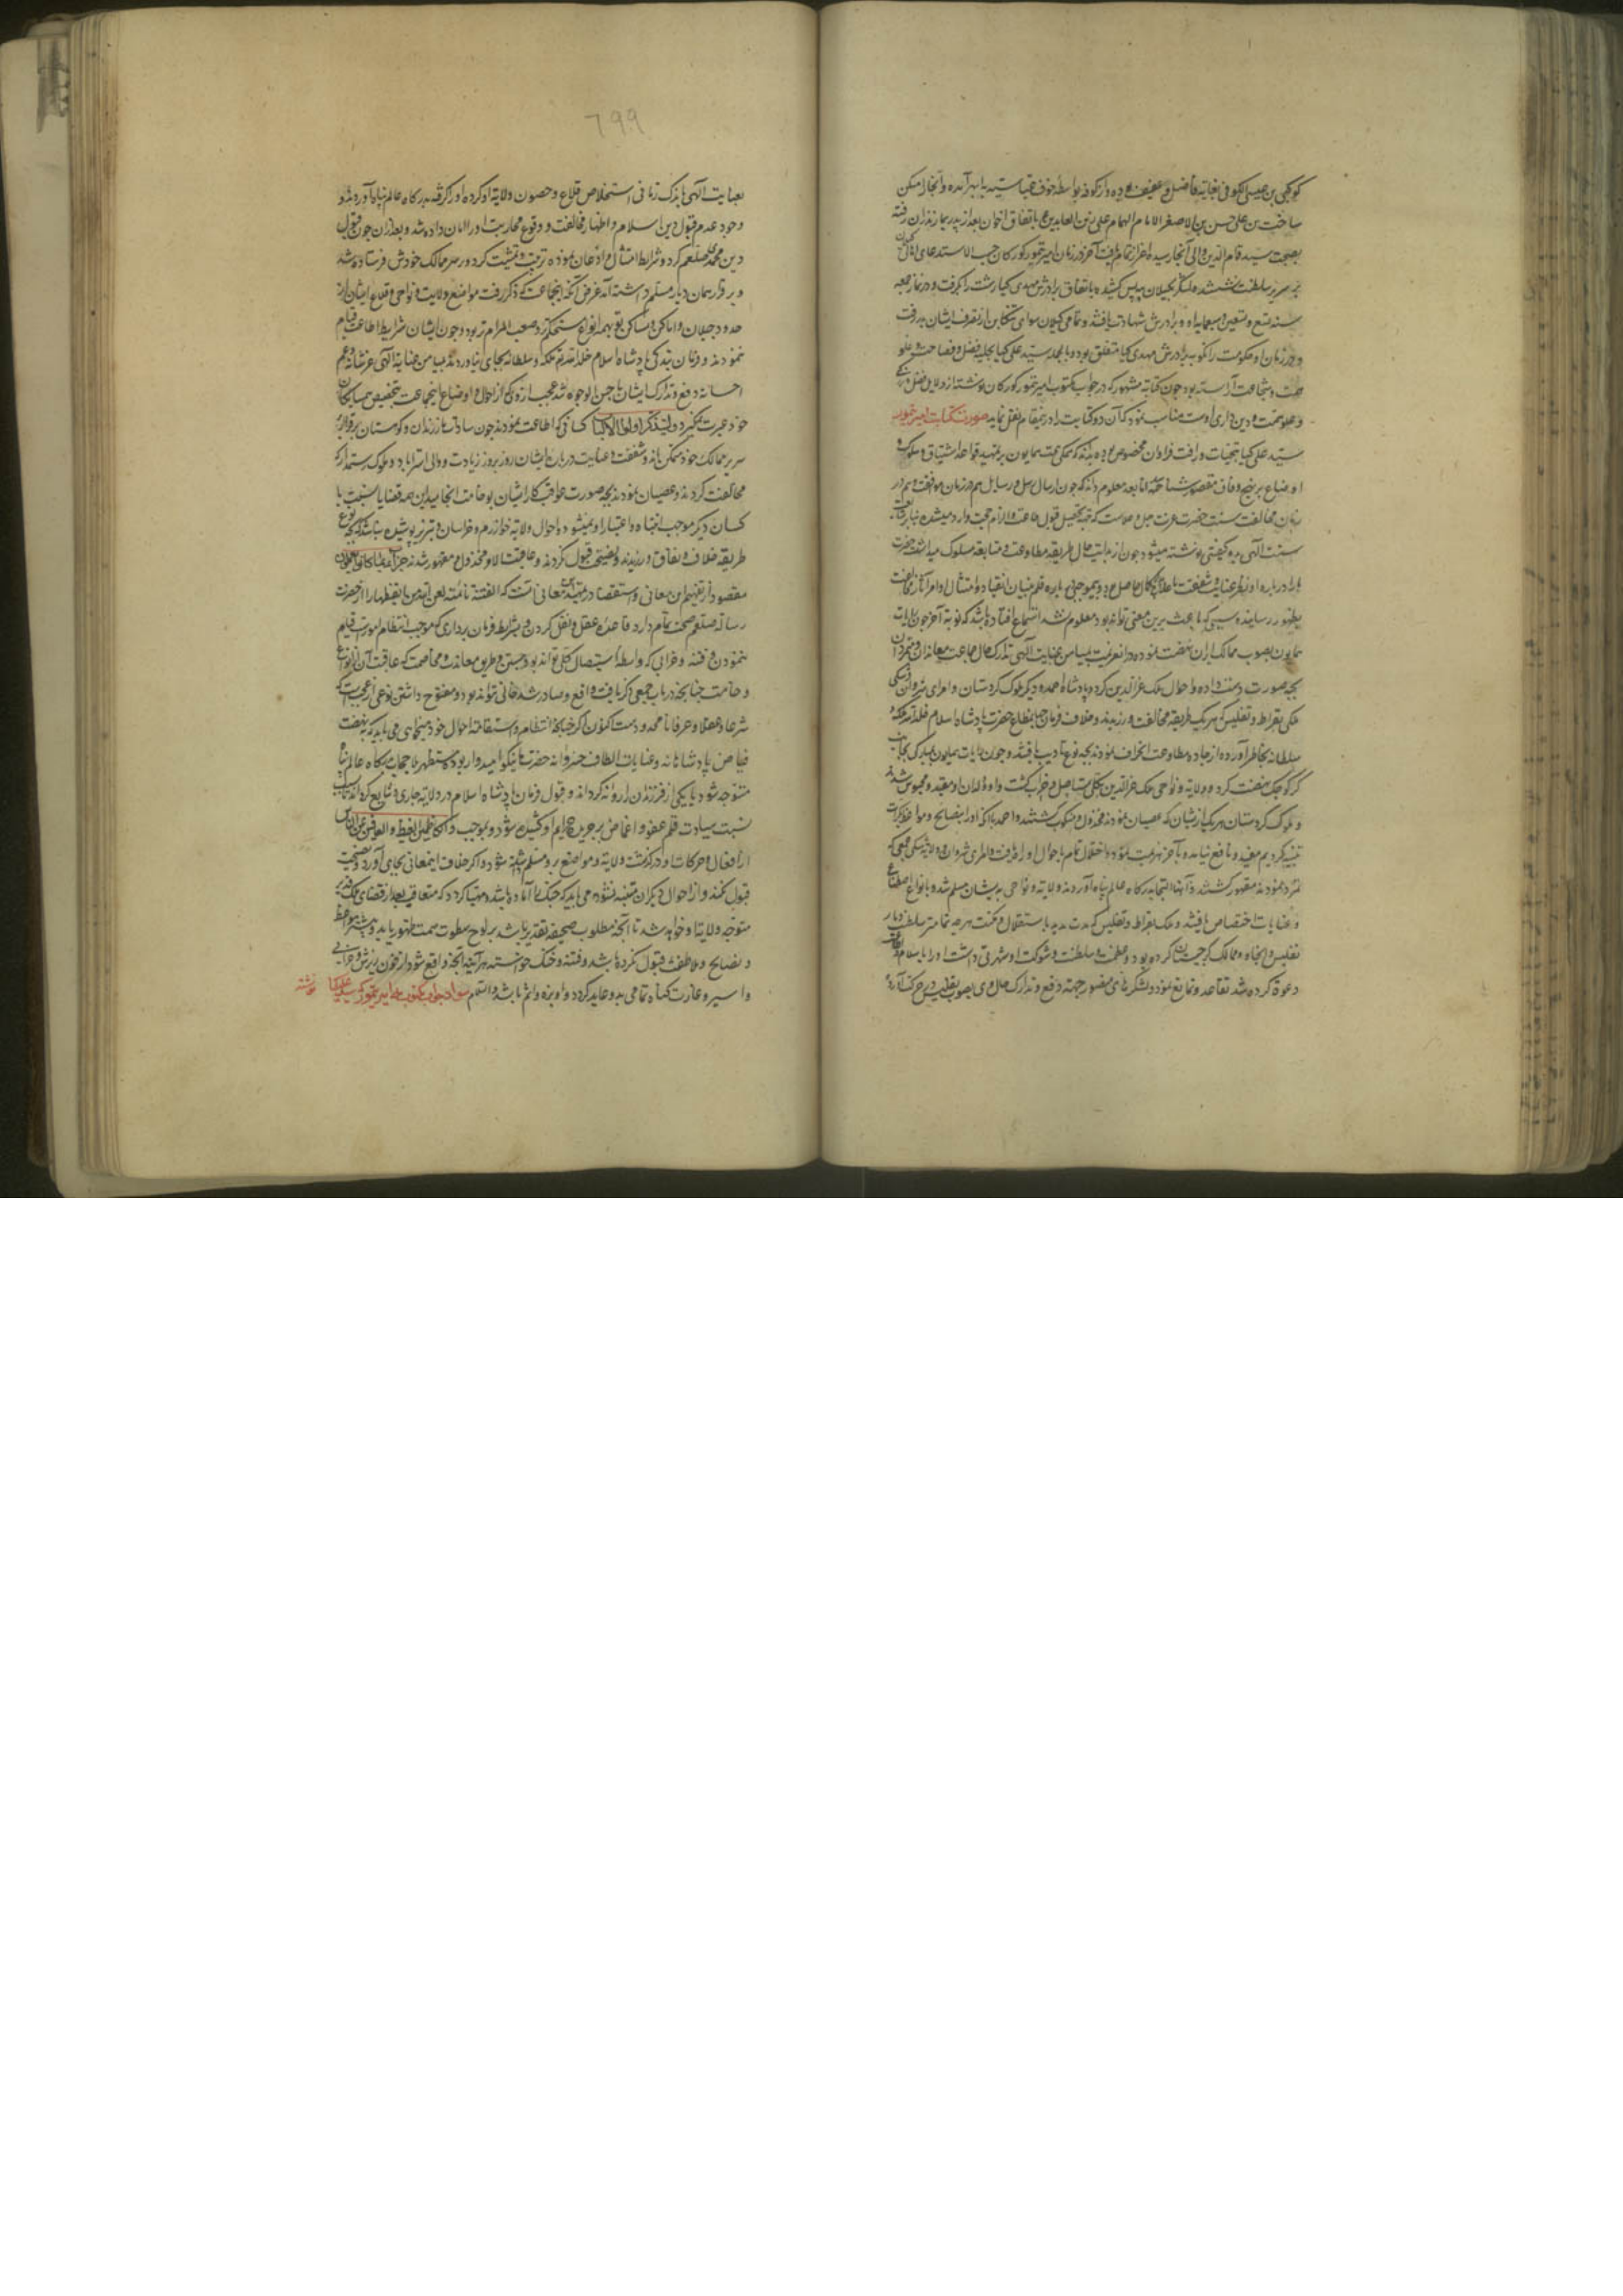 کوکبی بن عیسی الکوفی بغایة فاضل و عفیف بوده و از کوفه بواسطه خوف عباسیه بابهر آمده و آنجا را مسکن
ساخت بن علی حسن بن الاصغر الامام الهمام علی زین العابدین باتفاق اخوان بعد از پدر بمازندران رفته
بصحبت سید قوام الدین والی آنجا رسیده اعزاز تمام یافت آخر در زمان امیر تیمور کورکان حسب الاستدعای اهالی
بر سریر سلطنت نشسته لشکر بجیلان پیه پس کشیده باتفاق برادرش مهدی کیا رشت را بگرفت و در نماز جمعه
سنه تسع و تسعین و سبعمایه او و برادرش شهادت یافتند و تمامی کیلان سوای تنکابن از تصرف ایشان بدر رفت
و در زمان او حکومت رانکوبه برادرش مهدی کیا متعلق بود و بالجمله سید علی کیا بحلیه فضل و فصاحت و علو
همت و شجاعت آراسته بود چون کتابة مشهور که در جواب مکتوب امیر تیمور کورکان نوشته از دلایل فضل
و علو همت و دین داری اوست مناسب نمود که آن دو کتابت را درینمقام نقل نماید صورت کتابت امیر تیمور
سید علی کیا بتحیات و رافت فراوان مخصوص بوده بداند که همکی همت همایون بر تمهید قواعد اشتیاق و سلوک
اوضاع بر نهج وفاق مقصور شناخته لنا بعد معلوم داند که چون ارسال رسل و رسایل هم در زمان موافقت و هم در
زمان مخالفت سنت حضرت عزت جل و علاست که جهة تحصیل قبول طاعت و الزام حجت وارد میشده بنابر متابعت
سنت الهی بدو کیفیتی نوشته میشود چون از بدایت حال طریقه مطاوعت و متابعه مسلوک میداشت حضرت
ما را درباره او نظر عنایت و شفقت
بظهور رسانیده سببی که باعث برین معنی تواند بود معلوم نشد استماع افتاده باشد که نوبة آخر چون رایات
همایون بصوب ممالک ایران نهضت نموده در آنعزیمت بمیامن عنایت الهی تدارک حال جماعت معاندان و متمردان
بچه صورت دست داده و احوال ملک عزالدین کرد و پادشاه احمد و دیکر ملوک کردستان و امرای شروان و شکی
ملک بقراط و تفلیس که هر یک طریقه مخالفت ورزیدند و خلاف فرمان جهانمطاع حضرت پادشاه اسلام خلد الله ملکه و
سلطانه بخاطر آورده از جاده مطاوعت انحراف نمودند بچه نوع تادیب یافتند و چون رایات همایون بمبارکی بجانب
کرکوچک نهضت کرد و ولایة و نواحی ملک عزالدین بکلی مستاصل و خراب کشت و اولادان او مقید و محبوس شدند
و ملوک کردستان هر یک از ایشان که عصیان نمودند مخذول و منکوب کشتند و احمد باآنکه او را بنصایح و مواعظ بکرات
تنبیه کردیم مفید و نافع نیامد و بآخر هزیمت نمود و اختلال تمام باحوال او راه یافت و امرای شروان و ولایة شکی جمعی که
تمرد نمودند مقهور کشتند و آنها التجا بدرکاه عالم پناه آوردند ولایة و نواحی بدیشان مسلم شد و بانواع اصطناع
و عنایات اختصاص یافتند و ملک بقراط و تفلیس که مدت مدید باستقلال و مکنت هر چه تمامتر سلطنت دیار
تفلیس و انجاه و ممالک کرجستان کرده بود و عظمت و سلطنت و شوکت او شهرتی داشت او را باسلام
دعوة کرده شد تقاعد و تمانع نمود و لشکرهای منصور جهة دفع و تدارک حال وی بصوب تفلیس حرکت آورده
٦٩٩
بعنایت الهی باندک زمانی استخلاص قلاع و حصون ولایة او کرده او را کرفته بدرکاه عالم پناه آوردند و با
وجود عدم قبول دین اسلام و اظهار مخالفت و وقوع محاربت او را امان داده شد و بعد از آن چون قبول
دین محمدی صلعم کرد و شرایط امتثال و اذعان نموده تربیت و تمشیت کرد و بر سر ممالک خودش فرستاده شد
و برقرار بهمان دیار مسلم داشته آمد غرض آنکه اینجماعت که ذکر رفت مواضع ولایت و نواحی و قلاع ایشان از
حدود جیلان و اماکن و مساکن تو بهمه انواع مستحکمتر و صعب المرام تر بود و چون ایشان شرایط اطاعت قیام
ننمودند و فرمان بندکی پادشاه اسلام خلد الله ملکه و سلطانه بجای نیاوردند بمیامن عنایة الهی عز شانه و عم
احسانه دفع و تدارک ایشان باحسن الوجوه شد عجب از وی که از احوال و اوضاع اینجماعت بتخصیص همسایکان
خود عبرت نمیکیرد ولیتذکر اولوا الالباب کسانی که اطاعت نمودند چون سادات مازندران و کوهستان برقرار بر
سریر ممالک خود متمکن ماند و شفقت و عنایت درباره ایشان روز بروز زیادت و والی استراباد و ملوک رستمدار که
مخالفت کردند و عصیان نمودند بچه صورت عواقب کار ایشان بوخامت انجامید این همه قضایا نسبت با
کسان دیکر موجب انتباه و اعتبار او نمیشود و احوال ولایة خوارزم و خراسان و تبریز پوشیده نباشد که بچه نوع
طریقه خلاف و نفاق ورزیدند و نصیحت قبول نکردند و عاقبت الامر مخذول و مقهور شدند جزاء بما کانوا یعملون
مقصود از تفهیم این معانی و استقصا در تمهید این معانی آنست که الفتنة نائمة لعن الله من ایقظها را از حضرت
رسالة صلعم صحت تمام دارد قاعده عقل و نقل کردن و بشرایط فرمان برداری که موجب انتظام امورست قیام
ننمودن و فتنه و خرابی که واسطه استیصال کلی تواند بود جستن و طریق معانده و مخاصمت که عاقبت آن بانواع
وخامت چنانچه در باب جمعی که ذکر یافت واقع و صادر شد فانی تواند بود و مفتوح داشتن نوعی از عجبست که
شرعا و عقلا و عرفا نامحمود و مست اکنون اکر چنانچه انتظام و استقامة احوال خود میخواهی می باید که بنهضت
فیاض پادشاهانه و عنایات الطاف خسروانه حضرت ما نیکو امیدوار بوده مستظهر باجمعهم بدرکاه عالم پناه
متوجه شود یا یکی از فرزندان را روانه کرداند و قبول فرمان پادشاه اسلام در ولایة جاری و شایع کرداند تا
نسبت سیادت قلم عفو و اغماض بر جریده جرایم او کشیده شود و بموجب و الکاظمین الغیظ والعافین عن الناس
از افعال و حرکات او درکذشت ولایة و مواضع برو مسلم داشته شود و اکر خلاف اینمعانی بجای آورد و نصیحت
قبول نکند و از احوال دیکران متنبه نشود می باید که جنک را آماده باشد و مهیا کردد که متعاقب بعد از قضای ملک قدیر
متوجه ولایة او خواهد شد تا آنچه مطلوب صحیفه تقدیر باشد بر لوح سطوت سمت ظهور یابد و چون بمواعظ
و نصایح و ملاطفت قبول نکرده باشد و فتنه و جنک خواسته هر آینه آنچه واقع شود از خون ریزش و خرابی
و اسیر و غارت کناه تمامی بدو عاید کردد و او بزه و آثم باشد والسلام سواد جواب مکتوب که امیر تیمور که سید علی کیا نوشته